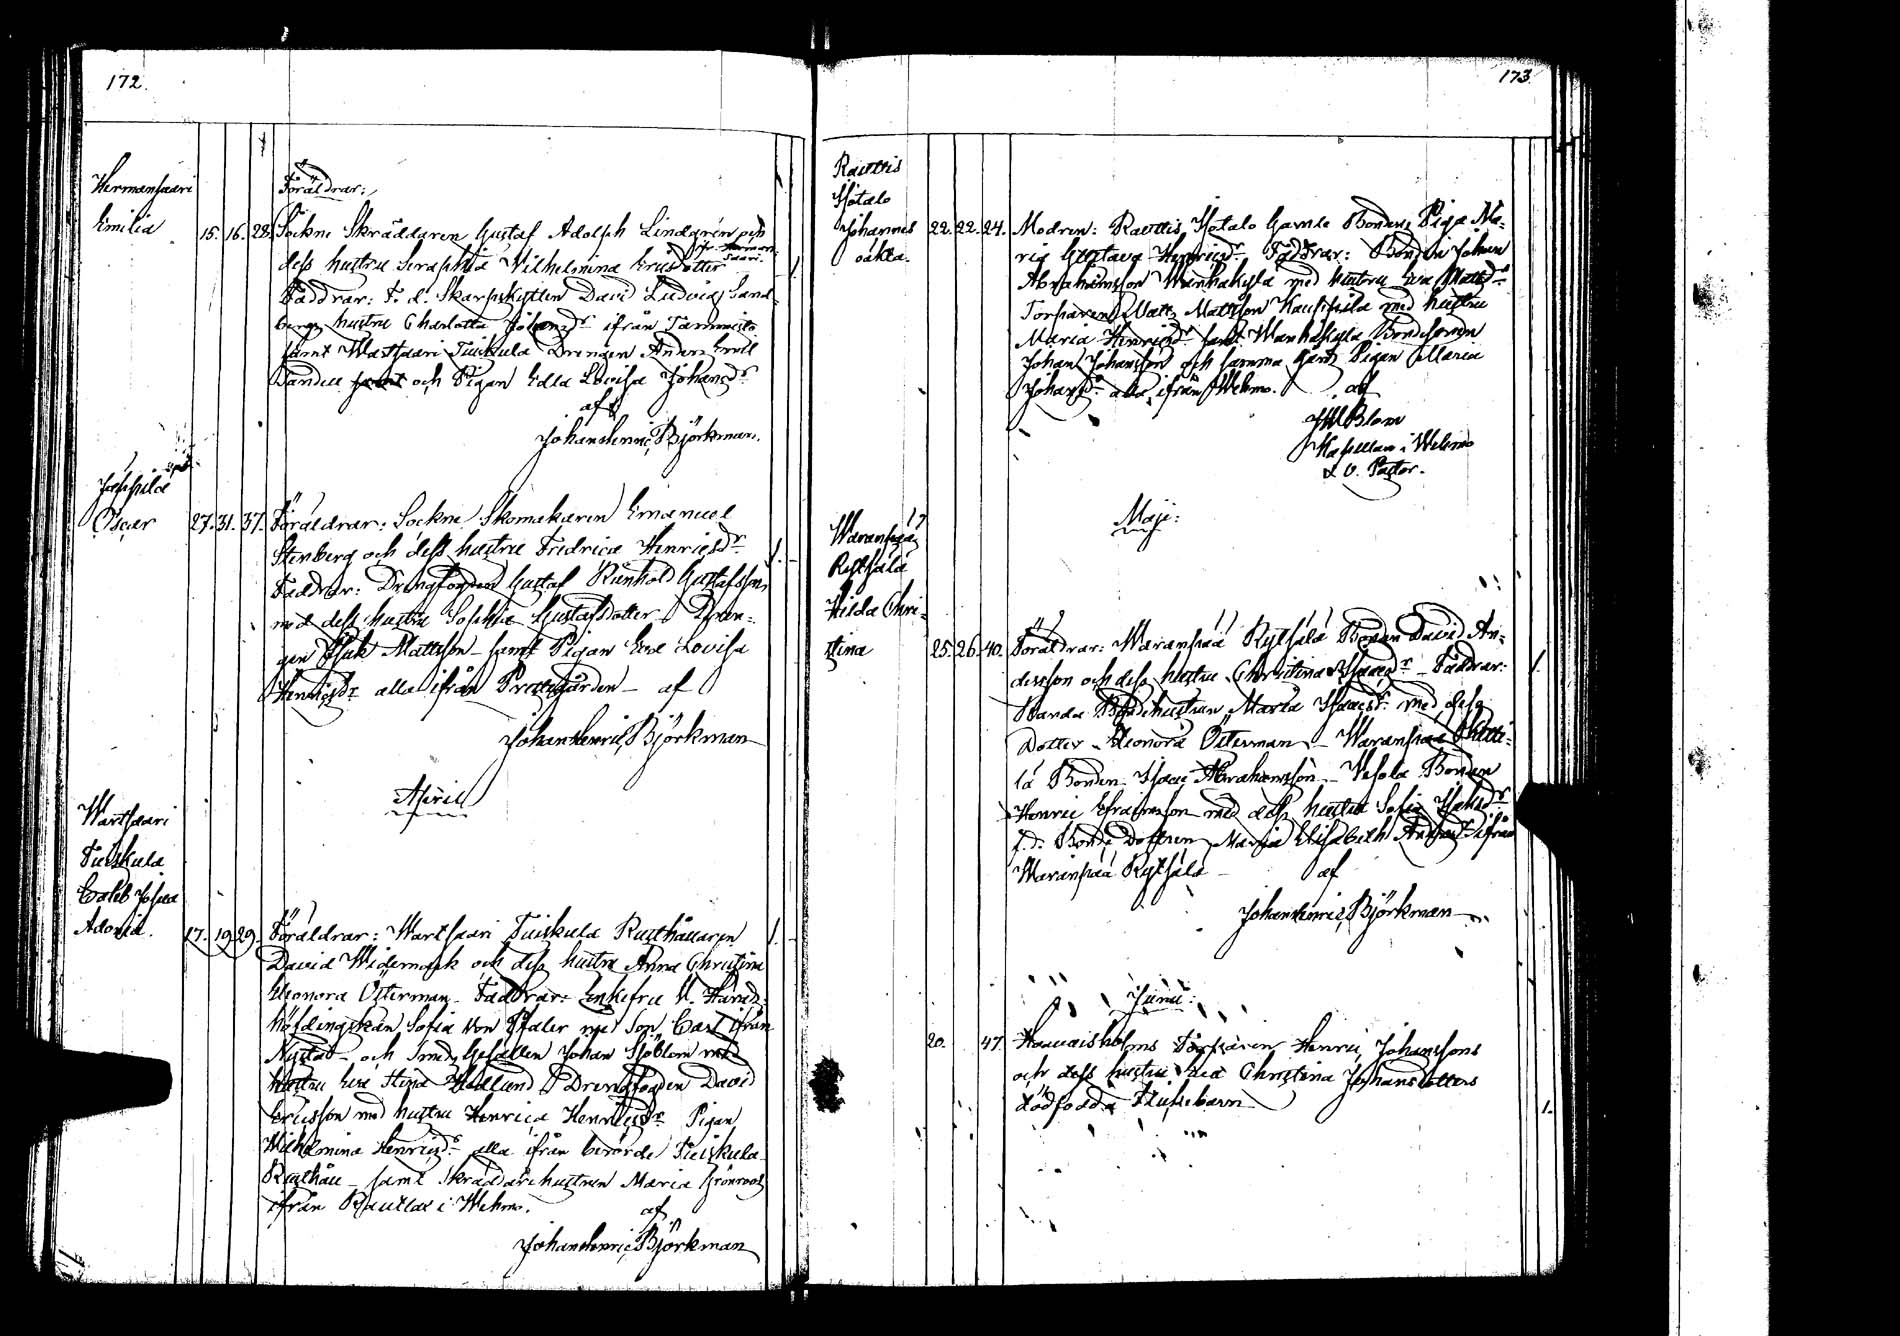 172.
Hermansaari
Emilia 15. 16. 28.
Föräldrar:
Sockne Skräddaren Gustaf Adolph Lindgrén och
dess hustru Seraphia Vilhelmina Ericsdotter
Faddrar: F. d. Skarpskytten David Ludvig Sand-
bergs hustru Charlotta Johansdr ifrån Tammisto
samt Wartsaari Tuiskula Drengen Anders Emil
Tandell samt och Pigan Edla Lovisa Johansdr
af
Johan Henric Björkman.
Jäppilä
Oscar 27. 31. 37.
Föräldrar: Sockne Skomakaren Emanuel
Stenberg och dess hustru Fredrica Henricsdr 1.
Faddrar: Drengfogden Gustaf Reinhold Gustafsson
med dess hustru Sophia Gustafsdotter Dren-
gen Isak Mattsson samt Pigan Eva Lovisa
Henricsdr alla ifrån Prestgården af
Johan Henric Björkman
April
Wartsaari
Tuiskula
Caleb Josua
Adonia. 17. 19. 29.
Föräldrar: Wartsaari Tuiskula Rusthållaren 1.
David Widemark och dess hustru Anna Christina
Eleonora Österman. Faddrar: Enkefru V. Härads-
höfdingskan Sofia von Pfaler med Son Carl ifrån
Nystad och Smeds Gesällen Johan Sjöblom med
hustru Eva Stina Hedlund Drengfogden David
Ericsson med hustru Henrica Henricsdr Pigan
Wilhelmina Henricsdr alla ifrån berörde Tuiskula
Rusthåll samt Skräddarehustrun Maria Grönroos
ifrån Rautila i Wehmo.
af
Johan Henric Björkman
173.
Rauttis
Isotalo
Johannes 22. 22. 24.
oäkta.
Modren: Rauttis Isotalo Gamle Bondens Piga Ma-
ria Gustava Henricsdr. Faddrar: Bonden Johan
Abrahamsson Wanhakylä med hustru Eva Mattsdr
Torparen Matts Mattsson Kauppila med hustru
Maria Henricsdr samt Wanhakylä Bondesonen
Johan Johansson och samma Gårds Pigan Maria
Johansdr alla ifrån Wehmo. af
JW Blom
Kapellan i Wehmo
& V. Pastor.
Maji:
Waranpää
Rytsälä
Hilda Chri-
stina 25. 26. 40.
Föräldrar: Waranpää Rytsälä Bonden David An- 1.
dersson och dess hustru Christina Isacsdr Faddrar:
Bondehustrun Maria Isacsdr med dess
Dotter Eleonora Österman Waranpää
lä Bonden Isaac Abrahamsson Wesola Bonden
Henric Efraimsson med dess hustru Sofia Isaksdr
f.d. Bonde Dottren Maria Elisabeth Andersdr ifrån
Waranpää Rytsälä af
Johan Henric Björkman
Junii:
20. 47.
Torparen Henric Johanssons
och dess hustru Christina Johansdotters
dödfödda Flickebarn 1.